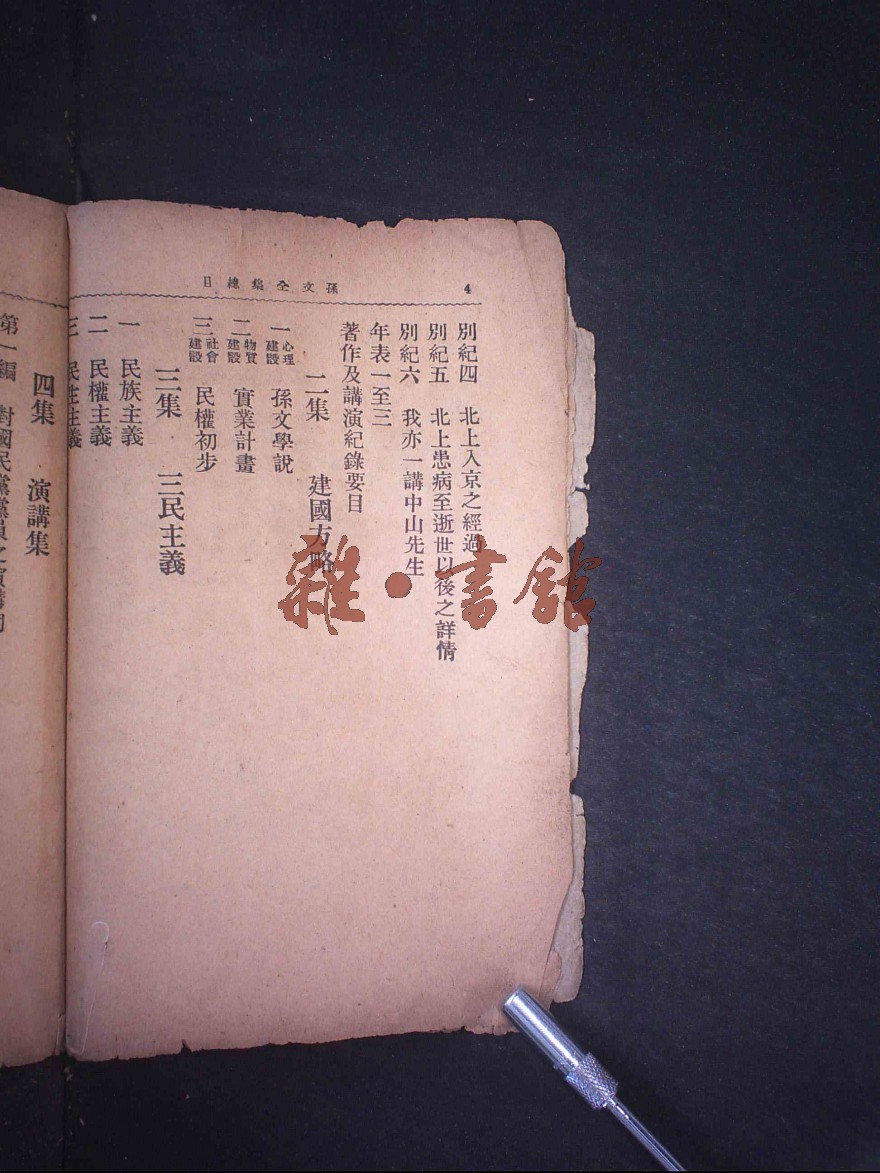 4
孫文全集總目
別紀四　北上入京之經過
別紀五　北上患病至逝世以後之詳情
別紀六　我亦一講中山先生
年表一至三
著作及講演紀錄要目
二集　建國方略
一　心理建設　孫文學說
二　物質建設　實業計畫
三　社會建設　民權初步
三集　三民主義
一　民族主義
二　民權主義
三　民生主義
四集　演講集
第一編　對國民黨黨員之演講詞
雜·書館